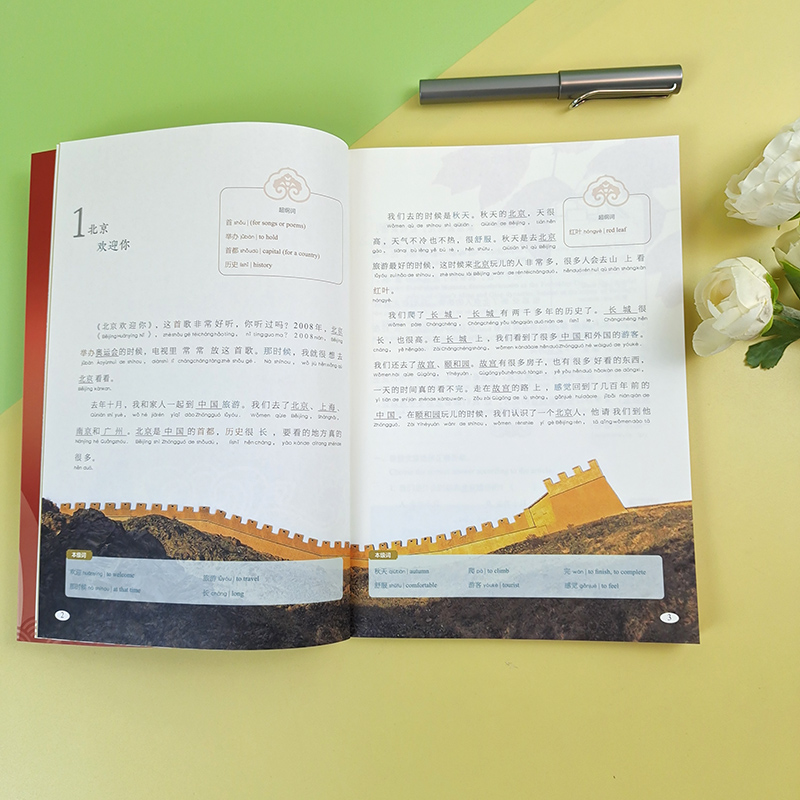 1 北京
欢迎你
超纲词
首 shǒu | (for songs or poems)
举办 jǔbàn | to hold
首都 shǒudū | capital (for a country)
历史 lìshǐ | history
《北京欢迎你》,这首歌非常好听,你听过吗?2008年,北京
举办奥运会的时候,电视里常常放这首歌。那时候,我就很想去
北京看看。
去年十月,我和家人一起到中国旅游。我们去了北京、上海、
南京和广州。北京是中国的首都,历史很长,要看的地方真的
很多。
本级词
欢迎 huānyíng | to welcome
旅游 lǚyóu | to travel
那时候 nà shíhou | at that time
长 cháng | long
2
我们去的时候是秋天。秋天的北京,天很
高,天气不冷也不热,很舒服。秋天是去北京
旅游最好的时候,这时候来北京玩儿的人非常多,很多人会去山上看
红叶。
超纲词
红叶 hóngyè | red leaf
我们爬了长城,长城有两千多年的历史了。长城很
长,也很高。在长城上,我们看到了很多中国和外国的游客。
我们还去了故宫、颐和园。故宫有很多房子,也有很多好看的东西,
一天的时间真的看不完。走在故宫的路上,感觉回到了几百年前的
中国。在颐和园玩儿的时候,我们认识了一个北京人,他请我们到他
本级词
秋天 qiūtiān | autumn
爬 pá | to climb
完 wán | to finish, to complete
舒服 shūfu | comfortable
游客 yóukè | tourist
感觉 gǎnjué | to feel
3